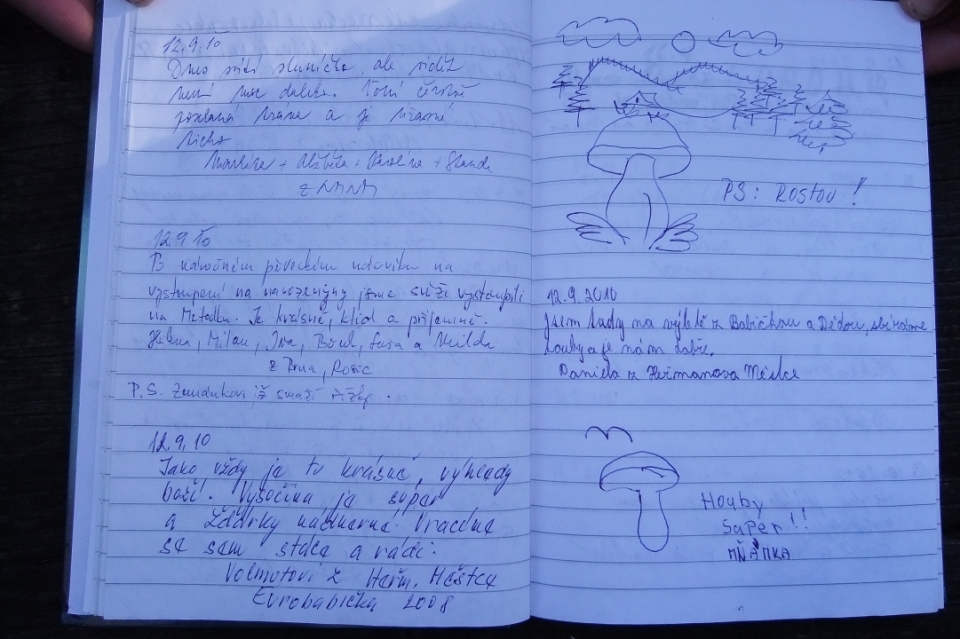 12.9.10
Dnes svítí sluníčko, ale vidět
není moc daleko. Kolem čerstvě
posekaná tráva a je krásné
ticho
Markéta + Alžběta + Karolína + Standa
12.9.10
Po náročném pěveckém na
vystoupení na narozeniny jsme vystoupili
na Je krásně, klid a příjemně.
Helena, Milan, Iva, a
z Brna, Rosic
P.S. už smaží řízky.
12.9.10
Jako vždy je tu krásně, výhledy
boží. Vysočina je super
a Žďárky nádherné. Vracíme
se sem stále a rádi.
Volmutovi z Heřm. Městce
Evrobabička 2008
PS: ROSTOU!
12.9.2010
Jsem tudy na výletě z Babičkou a Dědou, sbíráme
houby a je nám dobře.
Daniela z Heřmanova Městce
Houby
Saper!!
MŇAMKA